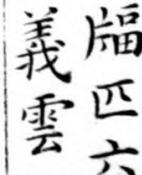 匹六
義雲